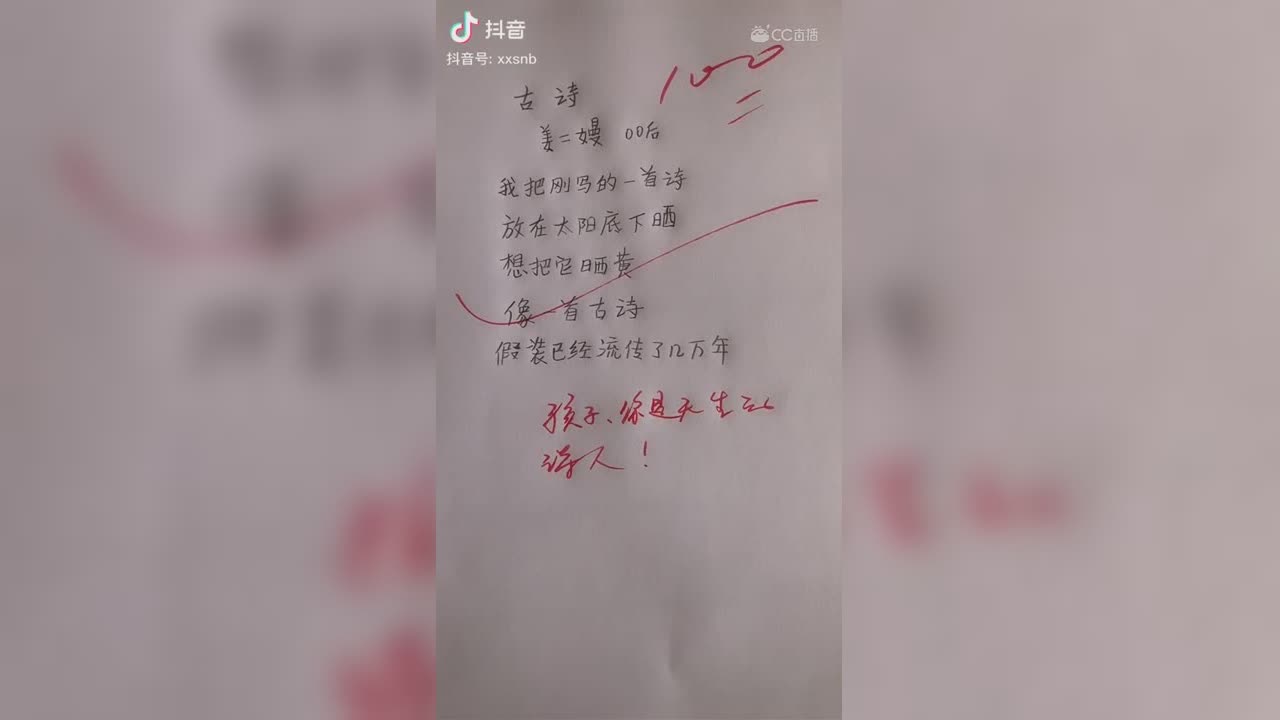 抖音
抖音号: xxsnb
CC直播
100
古诗
姜二嫚 00后
我把刚写的一首诗
放在太阳底下晒
想把它晒黄
像一首古诗
假装已经流传了几万年
孩子、你是天生的
诗人！